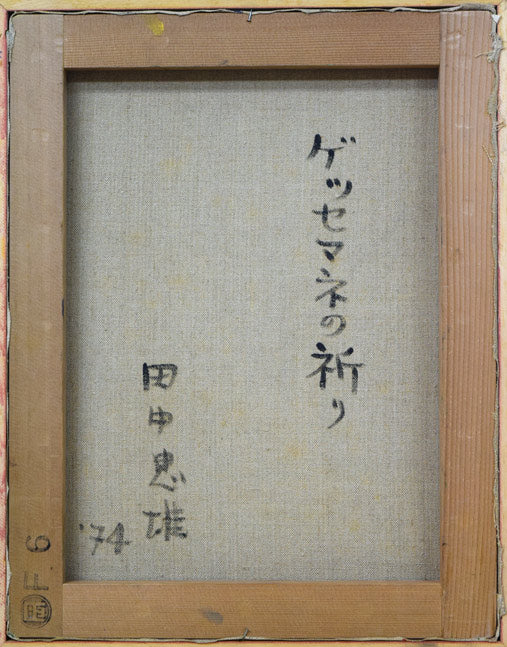 ゲツセマネの祈り
田中忠雄
'74
F.6